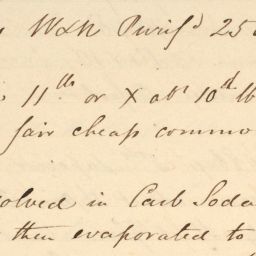 W&N Purif.d 25
11ths or X abt 10th
fair cheap commo
olved in Carb Soda
then evaporated to